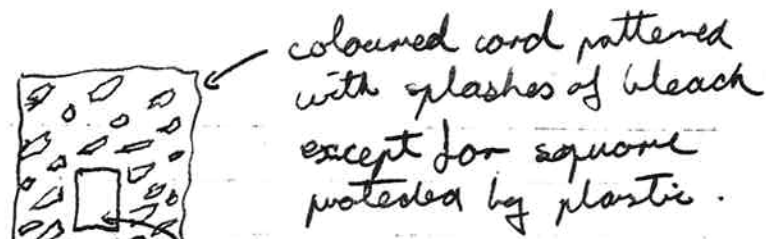 coloured card patterned
with splashes of bleach
except for square
protected by plastic.